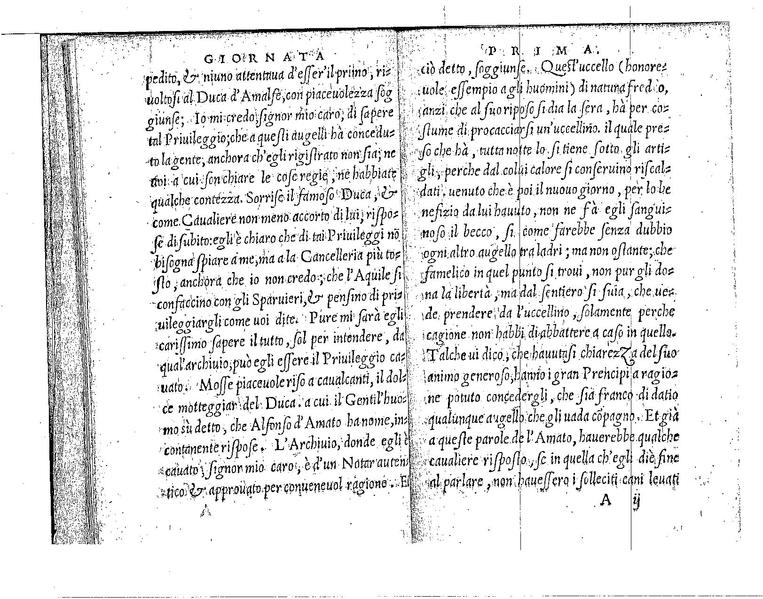 GIORNATA
pedito, & niuno attentaua d'esser'il primo, ri-
uoltosi al Duca d'Amalfe, con piaceuolezza sog
giunse; Io mi credo signor mio caro, di sapere
tal Priuileggio; che a questi augelli hà concedu-
to la gente; anchora ch'egli rigistrato non sia; ne
uoi a cui son chiare le cose regie, ne habbiate
qualche contezza. Sorrise il famoso Duca, &
come Caualiere non meno accorto di lui, rispo-
se di subito: egli è chiaro che di tai Priuileggi nō
bisogna spiare a me, ma a la Cancelleria più to-
sto, anchora che io non credo; che l'Aquile si
confaccino con gli Sparuieri, & pensino di pri-
uileggiargli come uoi dite. Pure mi sarà egli
carissimo sapere il tutto, sol per intendere, da
qual'archiuio, può egli essere il Priuileggio ca-
uato. Mosse piaceuole riso a caualcanti, il dol-
ce motteggiar del Duca. a cui il Gentil'huo-
mo sù detto, che Alfonso d'Amato ha nome, in-
contanente rispose. L'Archiuio, donde egli è
cauato signor mio caro, è d'un Notar auten
tico, & approuato per conueneuol ragione. E
PRIMA.
ciò detto, soggiunse. Quest'uccello (honore-
uole essempio a gli huomini) di natura freddo,
anzi che al suo riposo si dia la sera, hà per co-
stume di procacciarsi un'uccellino. il quale pre-
so che hà, tutta notte lo si tiene sotto gli arti-
gli, perche dal colui calore si conseruino riscal-
dati. uenuto che è poi il nuouo giorno, per lo be
nefizio da lui hauuto, non ne fà egli sangui-
noso il becco, si come farebbe senza dubbio
ogni altro augello tra ladri; ma non ostante; che
famelico in quel punto si troui, non pur gli do-
na la libertà, ma dal sentiero si suia, che ue-
de prendere da l'uccellino, solamente perche
cagione non habbi di abbattere a caso in quello.
Talche ui dico, che hauutasi chiarezza del suo
animo generoso, hanno i gran Prencipi a ragio-
ne potuto concedergli, che sia franco di datio
qualunque augello che gli uada cōpagno. Et già
a queste parole de l'Amato, hauerebbe qualche
caualiere risposto, se in quella ch'egli diè fine
al parlare, non hauessero i solleciti cani leuati
A ij